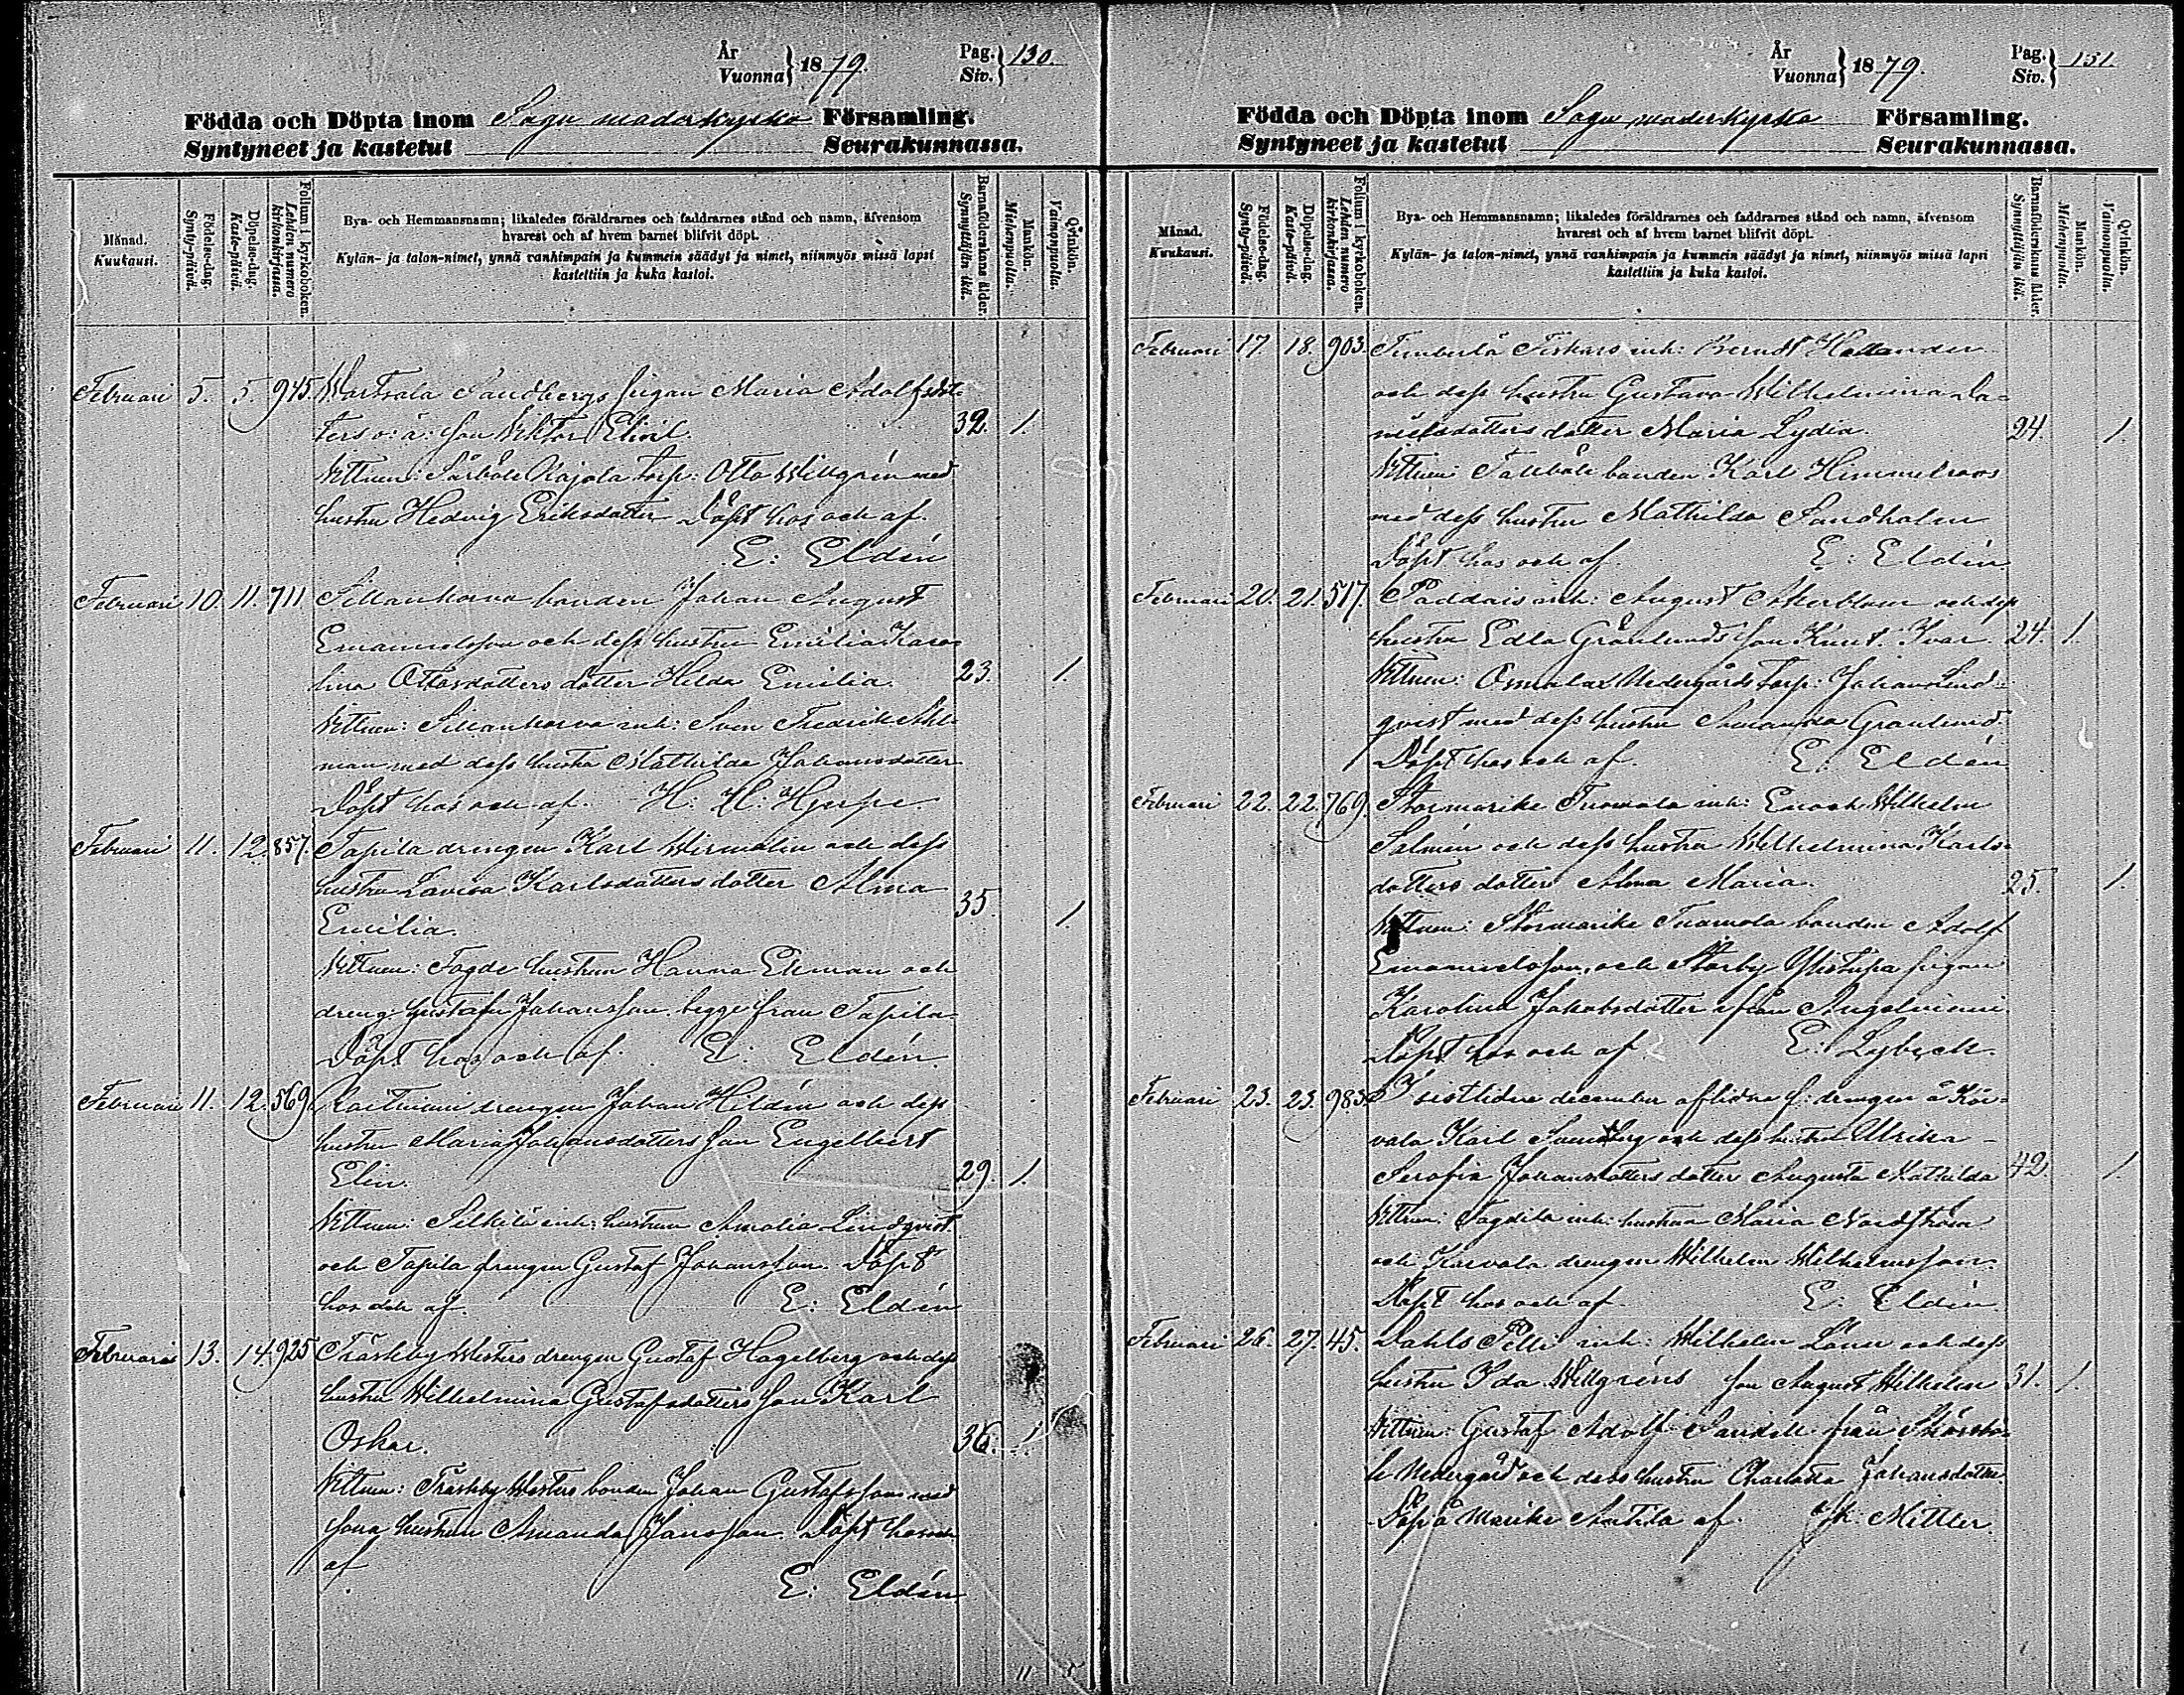 År
Vuonna } 1879.
Pag.
Siv. } 130.
Födda och Döpta inom Sagu moderkyrko Församling.
Syntyneet ja kastetut Seurakunnassa.
Månad.
Kuukausi.
Födelse-dag.
Synty-päivä.
Döpelse-dag.
Kaste-päivä.
Folium i kyrkoboken.
Lehden numero kirkonkirjassa.
Bya- och Hemmansnamn; likaledes föräldrarnes och faddrarnes stånd och namn, äfvensom
hvarest och af hvem barnet blifvit döpt.
Kylän- ja talon-nimet, ynnä vanhimpain ja kummein säädyt ja nimet, niinmyös missä lapsi
kastettiin ja kuka kastoi.
Barnaföderskans ålder.
Synnyttäjän ikä.
Mankön.
Miehenpuolia.
Qvinkön.
Vaimonpuolia.
Februari 5. 5. 945. Sandbergs pigan Maria Adolfsdot-
ters o: ä: son Viktor 32. 1.
Vittnen: Kajala torp: Otto Willgrén med
hustru Hedvig Eriksdotter Döpt hos och af.
E: Eldén
Februari 10. 11. 711 bonden Johan August
Emanuelsson och dess hustru Emilia Karo-
lina Ottosdotters dotter Hilda Emilia. 23. 1.
Vittnen: inh: Sven Fredrik
man med dess hustru Mathilda Johansdotter
Döpt hos och af. H: H:
Februari 11. 12. 857. Tapila drengen Karl och dess
hustru Lovisa Karlsdotters dotter Alma
Emilia. 35. 1.
Vittnen: hustrun Hanna Ekman och
dreng: Gustaf Johansson begge från Tapila
Döpt hos och af. E: Eldén.
Februari 11. 12. 569. drengen Johan Hildén och dess
hustru Maria Johansdotters son Engelbert
Elin. 29. 1.
Vittnen: inh: hustrun Amalia Lindqvist
och Tapila drengen Gustaf Johansson. Döpt
hos och af. E: Eldén
Februari 13. 14. 925 Träskby Westers drengen Gustaf Hagelberg och dess
hustru Wilhelmina Gustafsdotters son Karl
Oskar. 36. 1.
Vittnen: Träskby Westers bonden Johan Gustafsson med
hustrun Amanda Jansson. Döpt hos och
af
E: Eldén
11 5
År
Vuonna } 1879.
Pag.
Siv. } 131.
Födda och Döpta inom Sagu moderkyrko Församling.
Syntyneet ja kastetut Seurakunnassa.
Månad.
Kuukausi.
Födelse-dag.
Synty-päivä.
Döpelse-dag.
Kaste-päivä.
Folium i kyrkoboken.
Lehden numero kirkonkirjassa.
Bya- och Hemmansnamn; likaledes föräldrarnes och faddrarnes stånd och namn, äfvensom
hvarest och af hvem barnet blifvit döpt.
Kylän- ja talon-nimet, ynnä vanhimpain ja kummein säädyt ja nimet, niinmyös missä lapsi
kastettiin ja kuka kastoi.
Barnaföderskans ålder.
Synnyttäjän ikä.
Mankön.
Miehenpuolia.
Qvinkön.
Vaimonpuolia.
Februari 17. 18. 903. Timberlä Fiskars inh: Berndt Hollander
och dess hustru Gustava Wilhelmina Da-
nielsdotters dotter Maria Lydia. 24. 1.
Vittnen: bonden Karl Himmelroos
med dess hustru Mathilda Sandholm
Döpt hos och af. E: Eldén
Februari 20. 21. 517. Paddais inh: August Åkerblom och dess
hustru Edla Grånlunds son Knut Ivar. 24. 1.
Vittnen: Osmalax Nedergårds torp: Johan Lind-
qvist med dess hustru Amanda Granlund.
Döpt hos och af. E: Eldén
Februari 22. 22. 769. Stormarike Tuomola inh: Enoch Wilhelm
Salmén och dess hustru Wilhelmina Karls-
dotters dotter Alma Maria. 25. 1.
Vittnen: Stormarike Tuomola bonden Adolf
Emanuelsson, och Storby pigan
Karolina Jakobsdotter ifrån Angelniemi.
Döpt hos och af E: Lybeck.
Februari 23. 23. 983. I sistlidne december aflidne f: drengen å Koi-
vala Karl Sundberg och dess hustru Ulrika
Serafia Johansdotters dotter Augusta Mathilda 42. 1.
Vittnen: inh: hustrun Maria Nordström
och Koivala drengen Wilhelm Wilhelmsson.
Döpt hos och af. E: Eldén
Februari 26. 27. 45. Dahls Pelli inh: Wilhelm och dess
hustru Ida Willgréns son August Wilhelm 31. 1.
Vittnen: Gustaf Adolf Sandell från
Nedergård och dess hustru Charlotta Johansdotter.
Döpt å Marike af. Mittler.